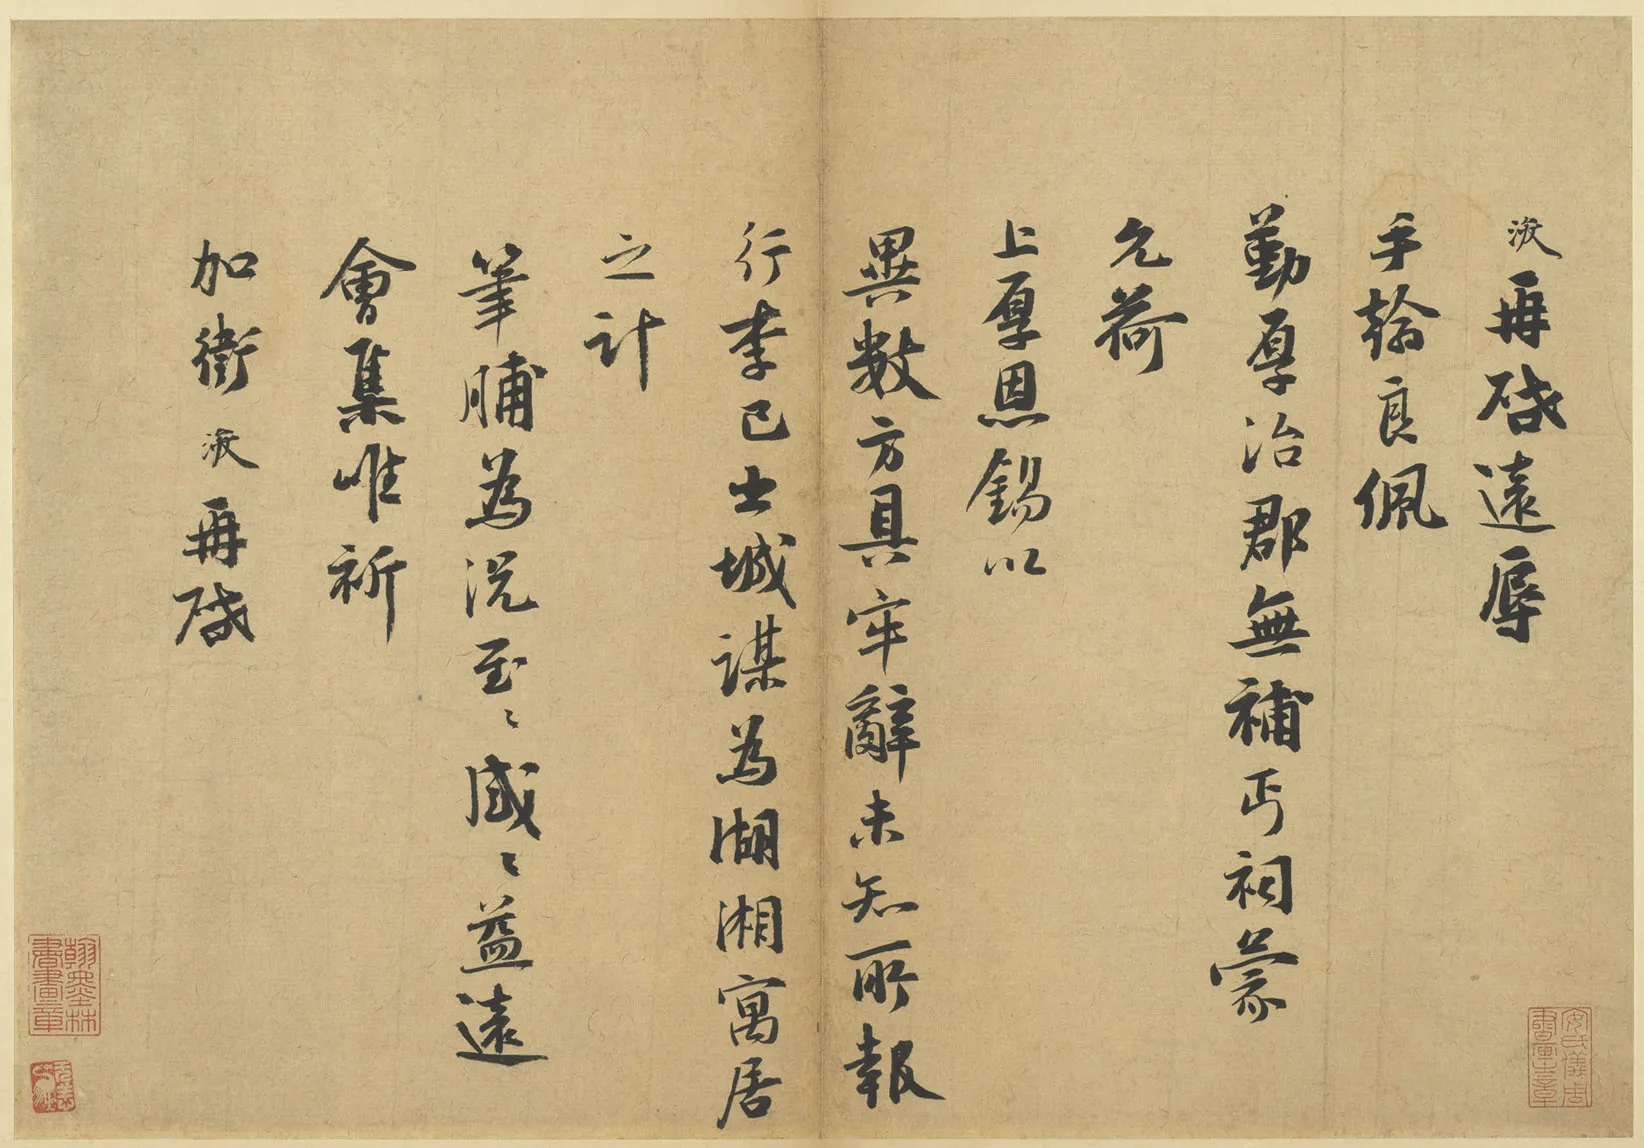 浚再啓遠辱
手翰良佩
勤厚治郡無補丐祠蒙
允荷
上厚恩錫以
異數方具牢辭未知所報
行李已出城謀為湖湘寓居
之計
筆脯為況至〻感〻益遠
會集唯祈
加衛浚再啓
安氏儀周書畫之章
翰墨林書畫章